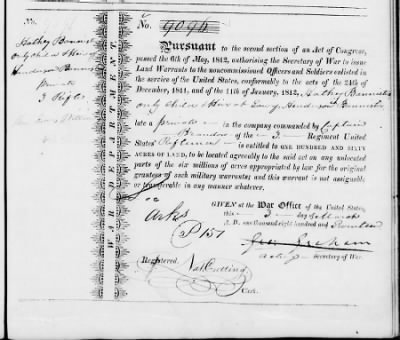 No. 9096
Pursuant to the second section of an Act of Congress,
passed the 6th of May, 1812, authorising the Secretary of War to issue
Land Warrants to the noncommissioned Officers and Soldiers enlisted in
the service of the United States, conformably to the acts of the 24th of
December, 1811, and of the 11th of January, 1812,
only child & Heir at Law of
late a private in the company commanded by Captain
of the 3 Regiment United
States' Riflemen is entitled to ONE HUNDRED AND SIXTY
ACRES OF LAND, to be located agreeably to the said act on any unlocated
parts of the six millions of acres appropriated by law for the original
grantees of such military warrants; and this warrant is not assignable
or transferable in any manner whatever.
GIVEN at the War Office of the United States,
this 3 day of March
A. D. one thousand eight hundred and
Geo. Graham
acting Secretary of War.
Arks
P 151
Registered, Nat Cutting
Clk.
No.
only child & Heir
private
3 Rifles
WAR DEPARTMENT